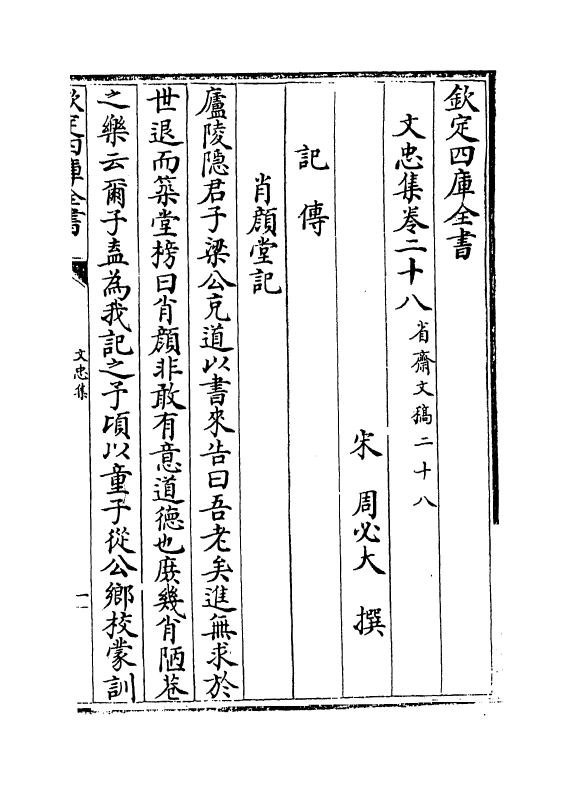 欽定四庫全書
文忠集卷二十八 省齋文稿二十八
宋 周必大 撰
記傳
肖顔堂記
廬陵隠君子梁公克道以書來告曰吾老矣進無求於
世退而築堂榜曰肖顔非敢有意道德也庻幾肖陋巷
之樂云爾子盍為我記之予頃以童子從公鄉校蒙訓
欽定四庫全書
文忠集
一